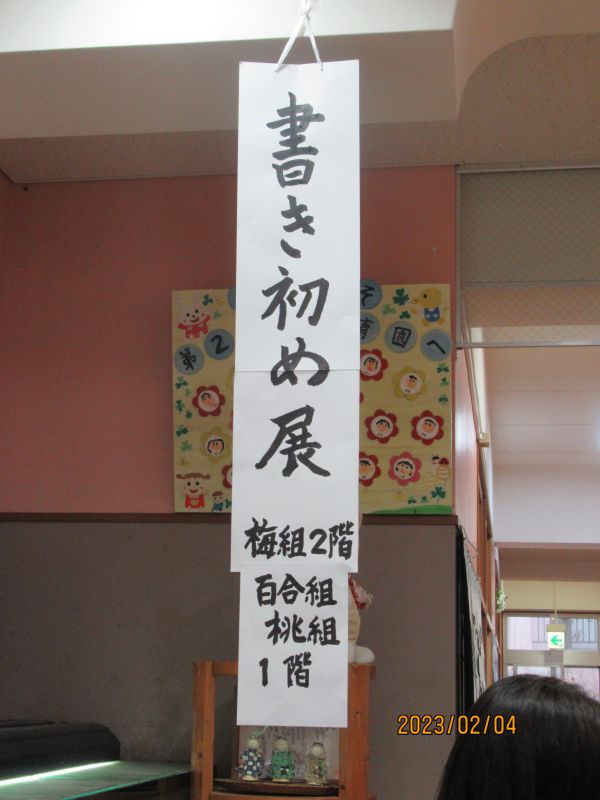 書き初め展
梅組2階
百合組
桃組
1階
そ
第2
育園へ
2023/02/04